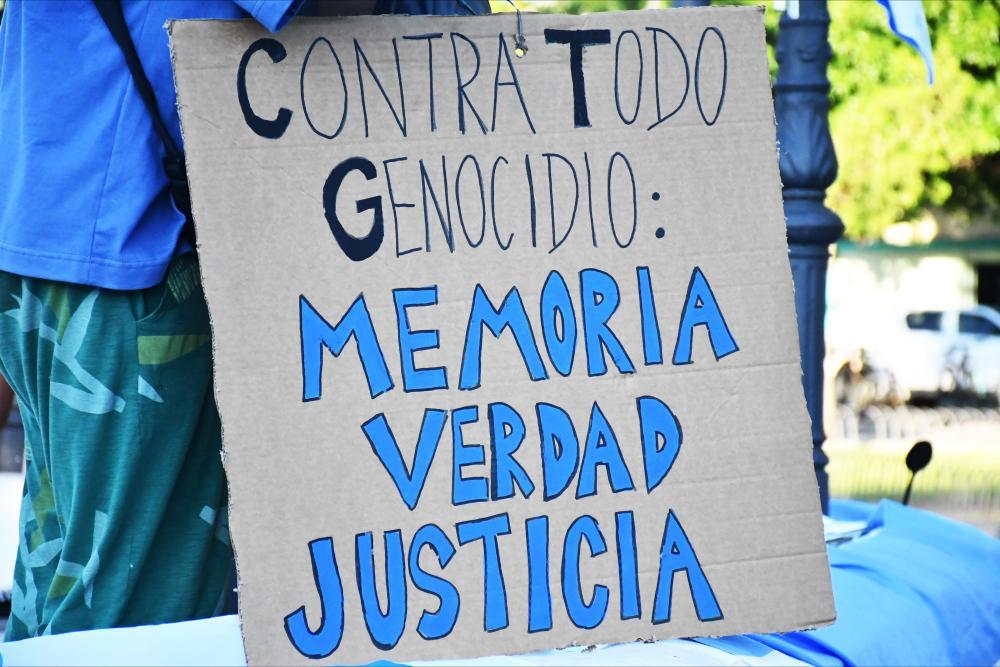 CONTRA TODO
GENOCIDIO:
MEMORIA
VERDAD
JUSTICIA